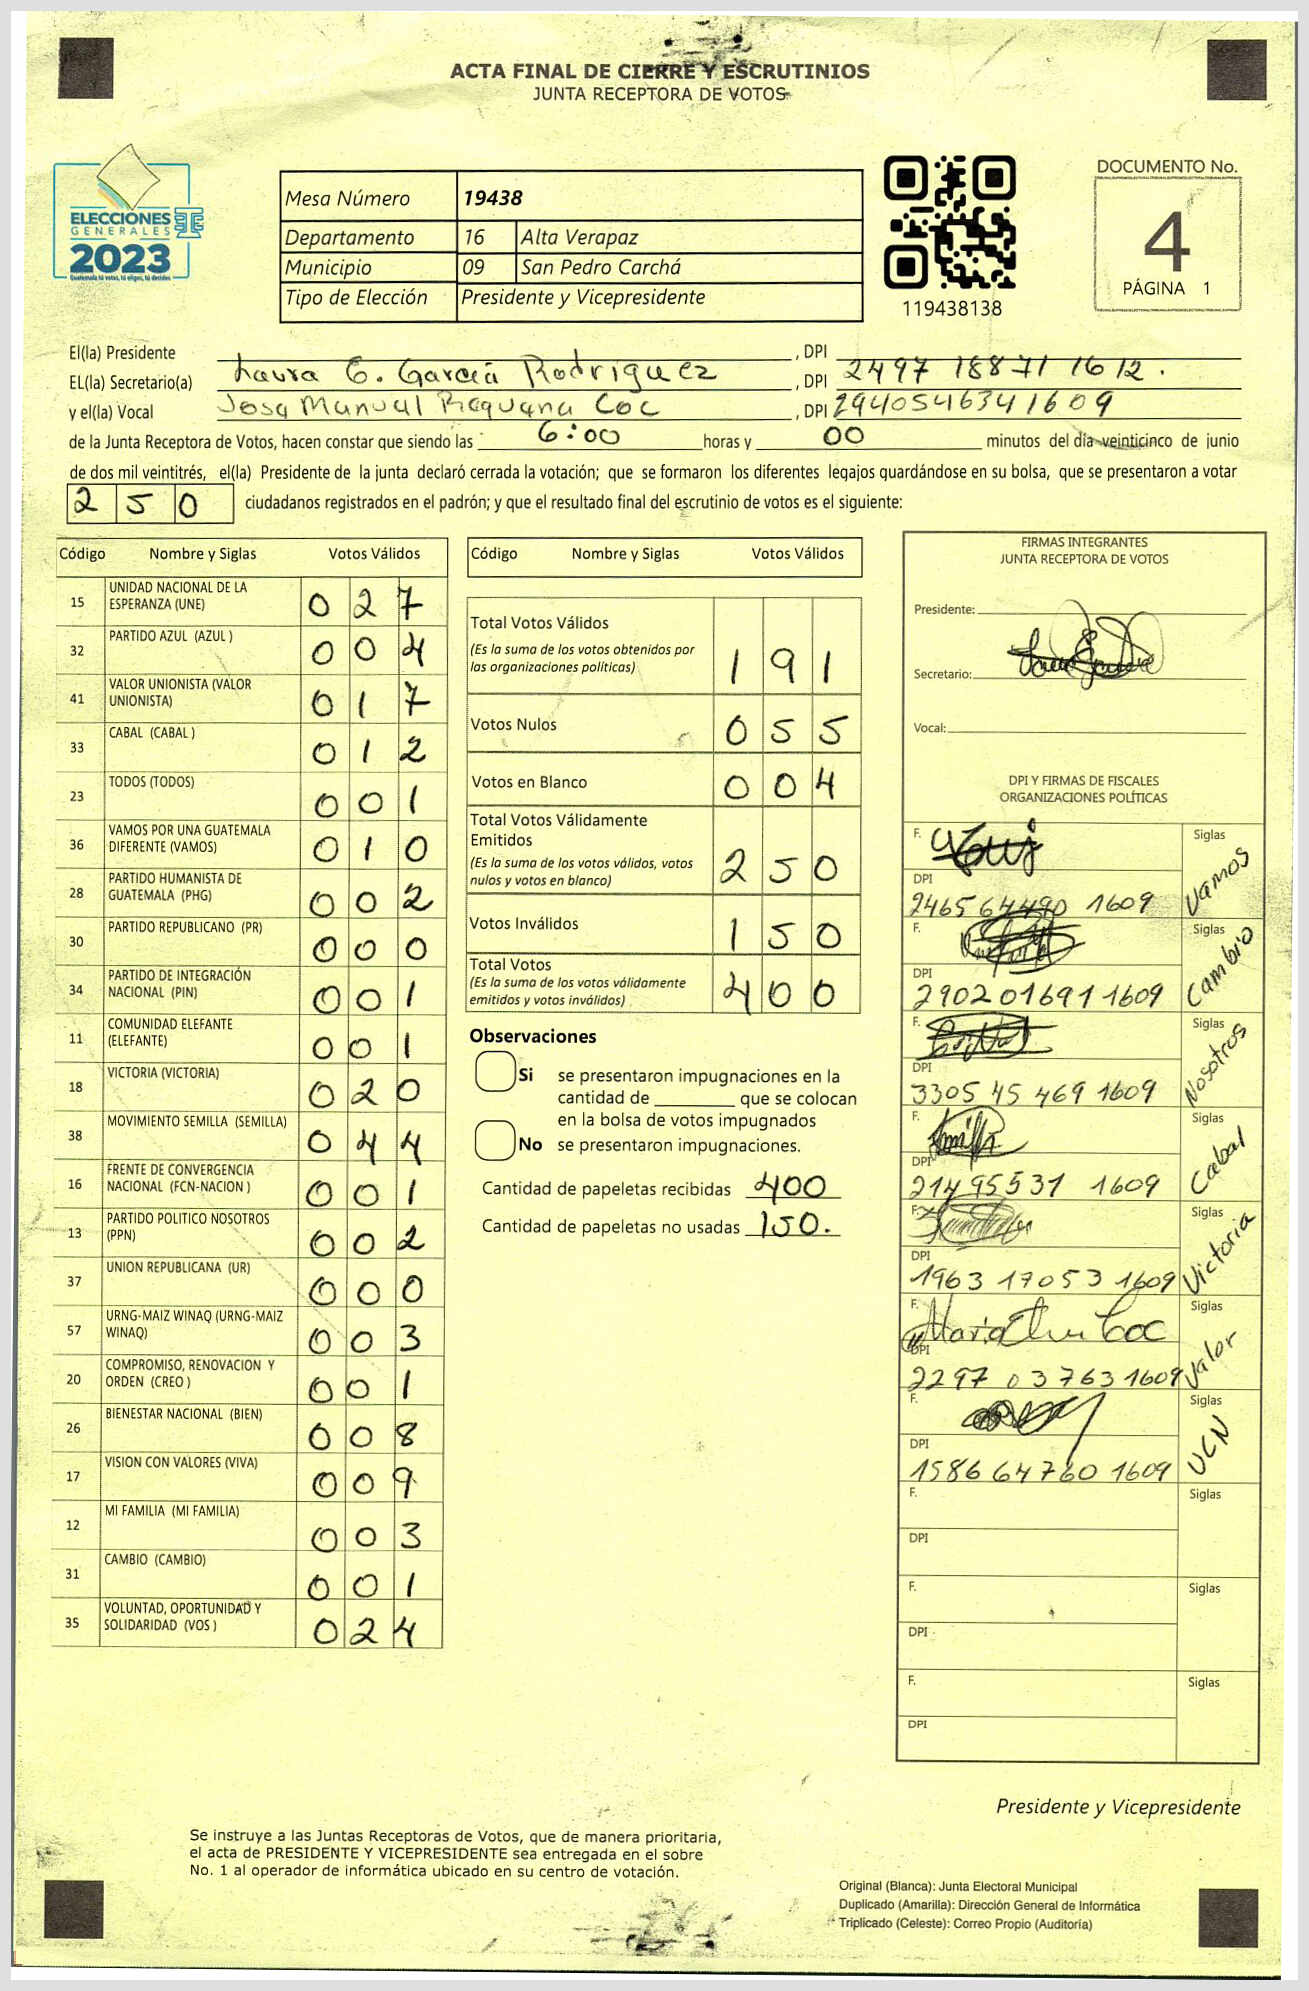 ACTA FINAL DE CIERRE Y ESCRUTINIOS
JUNTA RECEPTORA DE VOTOS
ELECCIONES
GENERALES
2023
Guatemala tú votas, tú eliges, tú decides
Mesa Número 19438
Departamento 16 Alta Verapaz
Municipio 09 San Pedro Carchá
Tipo de Elección Presidente y Vicepresidente
119438138
DOCUMENTO No.
4
PÁGINA 1
El(la) Presidente , DPI
EL(la) Secretario(a) Laura E. García Rodriguez , DPI 2497 18871 1612.
y el(la) Vocal Josa Manual Raquana Coc , DPI 2940546341609
de la Junta Receptora de Votos, hacen constar que siendo las 6:00 horas y 00 minutos del día veinticinco de junio
de dos mil veintitrés, el(la) Presidente de la junta declaró cerrada la votación; que se formaron los diferentes legajos guardándose en su bolsa, que se presentaron a votar
250 ciudadanos registrados en el padrón; y que el resultado final del escrutinio de votos es el siguiente:
Código Nombre y Siglas Votos Válidos
15 UNIDAD NACIONAL DE LA ESPERANZA (UNE) 027
32 PARTIDO AZUL (AZUL ) 004
41 VALOR UNIONISTA (VALOR UNIONISTA) 017
33 CABAL (CABAL ) 012
23 TODOS (TODOS) 001
36 VAMOS POR UNA GUATEMALA DIFERENTE (VAMOS) 010
28 PARTIDO HUMANISTA DE GUATEMALA (PHG) 002
30 PARTIDO REPUBLICANO (PR) 000
34 PARTIDO DE INTEGRACIÓN NACIONAL (PIN) 001
11 COMUNIDAD ELEFANTE (ELEFANTE) 001
18 VICTORIA (VICTORIA) 020
38 MOVIMIENTO SEMILLA (SEMILLA) 044
16 FRENTE DE CONVERGENCIA NACIONAL (FCN-NACION ) 001
13 PARTIDO POLITICO NOSOTROS (PPN) 002
37 UNION REPUBLICANA (UR) 000
57 URNG-MAIZ WINAQ (URNG-MAIZ WINAQ) 003
20 COMPROMISO, RENOVACION Y ORDEN (CREO ) 001
26 BIENESTAR NACIONAL (BIEN) 008
17 VISION CON VALORES (VIVA) 009
12 MI FAMILIA (MI FAMILIA) 003
31 CAMBIO (CAMBIO) 001
35 VOLUNTAD, OPORTUNIDAD Y SOLIDARIDAD (VOS ) 024
Código Nombre y Siglas Votos Válidos
Total Votos Válidos 191
(Es la suma de los votos obtenidos por
las organizaciones políticas)
Votos Nulos 055
Votos en Blanco 004
Total Votos Válidamente
Emitidos 250
(Es la suma de los votos válidos, votos
nulos y votos en blanco)
Votos Inválidos 150
Total Votos 400
(Es la suma de los votos válidamente
emitidos y votos inválidos)
Observaciones
Si se presentaron impugnaciones en la
cantidad de ________ que se colocan
en la bolsa de votos impugnados
No se presentaron impugnaciones.
Cantidad de papeletas recibidas 400
Cantidad de papeletas no usadas 150.
FIRMAS INTEGRANTES
JUNTA RECEPTORA DE VOTOS
Presidente:
Secretario:
Vocal:
DPI Y FIRMAS DE FISCALES
ORGANIZACIONES POLÍTICAS
F. Siglas Vamos
DPI 246564490 1609
F. Siglas Cambio
DPI 290201691 1609
F. Siglas Nosotros
DPI 3305 45 469 1609
F. Siglas Cabal
DPI 21495531 1609
F. Siglas Victoria
DPI 1963 17053 1609
F. Maria Coc Siglas Valor
DPI 2297 03763 1609
F. Siglas UCN
DPI 1586 64760 1609
F. Siglas
DPI
F. Siglas
DPI
F. Siglas
DPI
Presidente y Vicepresidente
Se instruye a las Juntas Receptoras de Votos, que de manera prioritaria,
el acta de PRESIDENTE Y VICEPRESIDENTE sea entregada en el sobre
No. 1 al operador de informática ubicado en su centro de votación.
Original (Blanca): Junta Electoral Municipal
Duplicado (Amarilla): Dirección General de Informática
Triplicado (Celeste): Correo Propio (Auditoría)